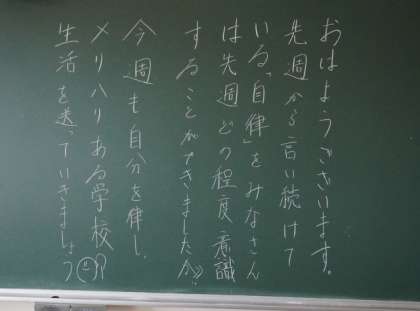 おはようございます。
先週から言い続けて
いる「自律」をみなさん
は先週どの程度意識
することができましたか??
今週も自分を律し、
メリハリある学校
生活を送っていきましょう